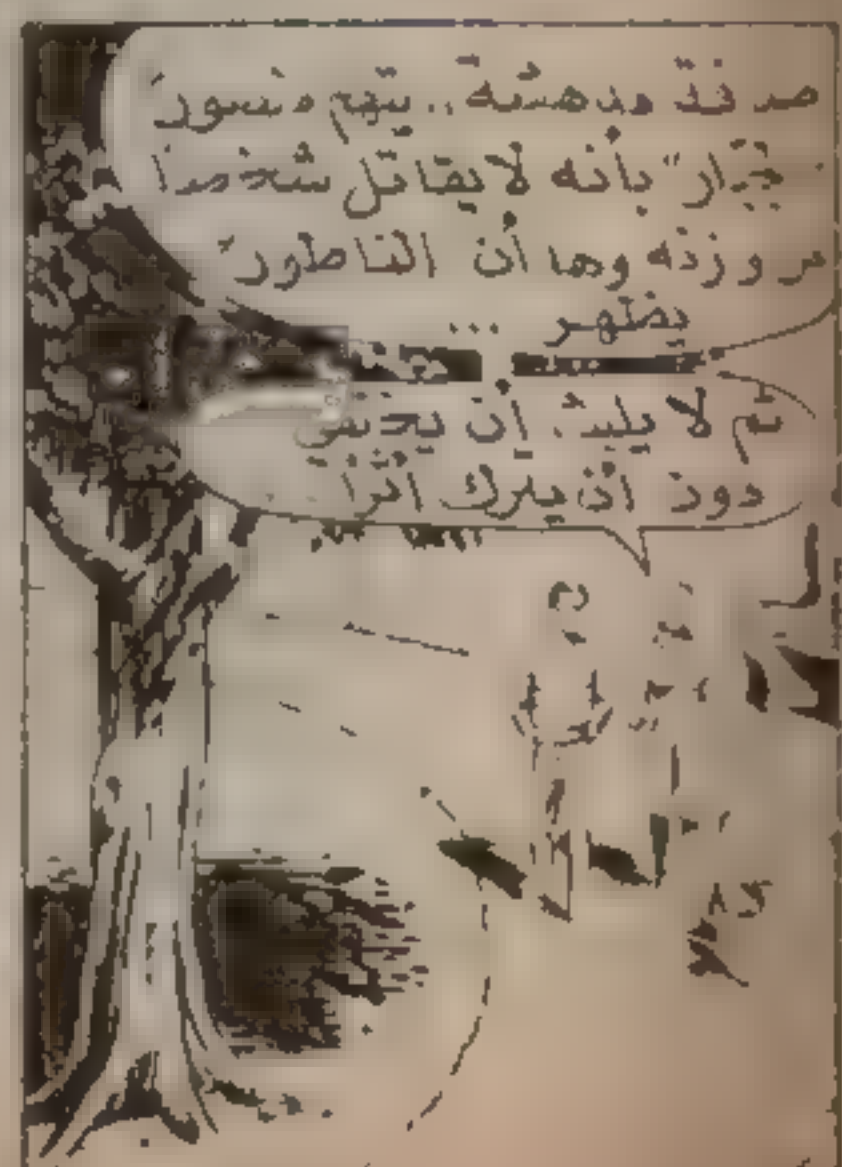 صدفة مدهشة .. يتهم منسور
"جبار" بأنه لا يقاتل شخصاً
من وزنه وها أن "الناطور"
يظهر ...
ثم لا يلبث أن يختفي
دون أن يترك أثراً